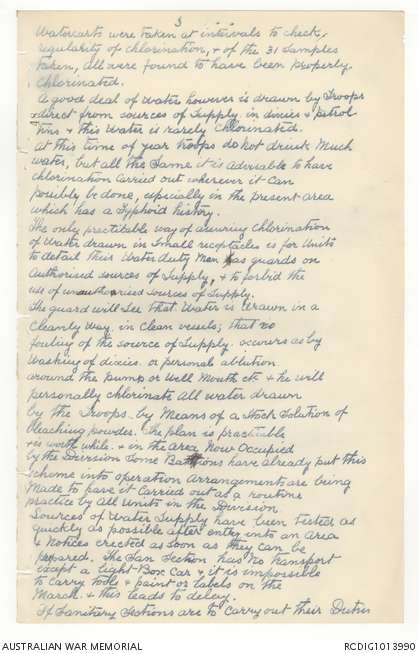 3
Watercarts were taken at intervals to check,
regularity of chlorination, & of the 31 samples
taken, all were found to have been properly
Chlorinated.
A good deal of Water however is drawn by Troops
direct from sources of Supply in dixies & petrol
tins & this Water is rarely Chlorinated.
At this time of year troops do not drink Much
water, but all the Same it is advisable to have
chlorination Carried out wherever it Can
possibly be done, especially in the present area
which has a Typhoid history.
The only practicable way of assuring Chlorination
of Water drawn in Small receptacles is for Units
to detail their Water duty Men as guards on
Authorised sources of Supply, & to forbid the
use of unauthorised sources of Supply.
The guard will See that Water is drawn in a
Cleanly way, in Clean vessels; that no
fouling of the source of Supply occurs as by
Washing of dixies or personal ablution
around the pump or Well Mouth etc & he will
personally Chlorinate All water drawn
by the Troops by Means of a Stock Solution of
bleaching powder. The plan is practicable
& is worth while & in the area Now Occupied
by the Division Some Battions have already put this
Scheme into operation Arrangements are being
Made to have it Carried out as a routine
practice by All Units in the Division.
Sources of Water Supply have been Tested as
quickly as possible after entry into an area
& Notices erected as soon as they can be
prepared. The San Section has No Transport
except a light Box Car & it is impossible
to Carry tools & paint or labels on the
March & this leads to delay.
If Sanitary Sections are to Carry out their Duties
AUSTRALIAN WAR MEMORIAL
RCDIG1013990